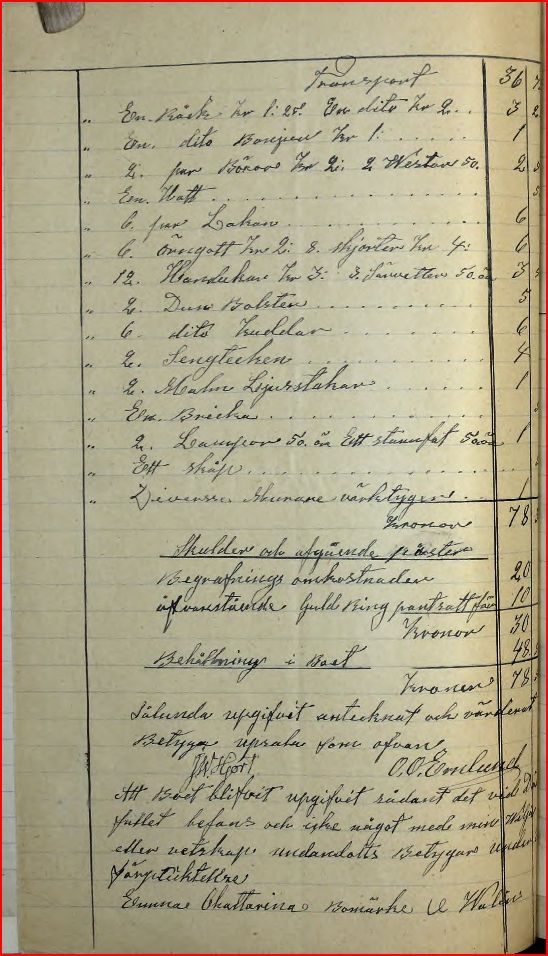 Transport 36
" En Råck Kr 1: 25. En dito Kr 2. . 3 2
" En. dito Bonjeu Kr 1: . . . . . 1
" 2. par Böxor Kr 2: 2 Westar 50. 2
" En. Hatt . . . . .
" 6. par Lakan . . . . . 6
" 6. örngått Kr 2: 8. skjorter Kr 4: 6
" 12. Handukar Kr 3: 3. Särvetter 50. ör 3
" 2. Dun Bolster . . . . . 5
" 6. dito Kuddar . . . . . 6
" 2. Sengtecken . . . . . 4
" 2. Malm Ljusstakar . . . . . 1
" En. Bricka . . . . .
" 2. Lampor 50. ör Ett stenfat 50 ör 1
" Ett skåp . . . . .
" Diversse. Murare värktyger . . 1
Kronor 78
Skulder och afgående påster
Begrafnings omkostnader 20
ofvanstående Guld Ring pantsatt för 10
Kronor 30
Behållning i Boet 48
Kronor 78
Sålunda upgifvit antecknat och värderat
Betyga upsala som ofvan
J W. Hjort O. O. Emlund
Att Boet blifvit upgifvit sådant det vid Dö
fallet befans och icke något med min
eller vetskap undandolts Betygar under
Emma Chattarina Bomärke